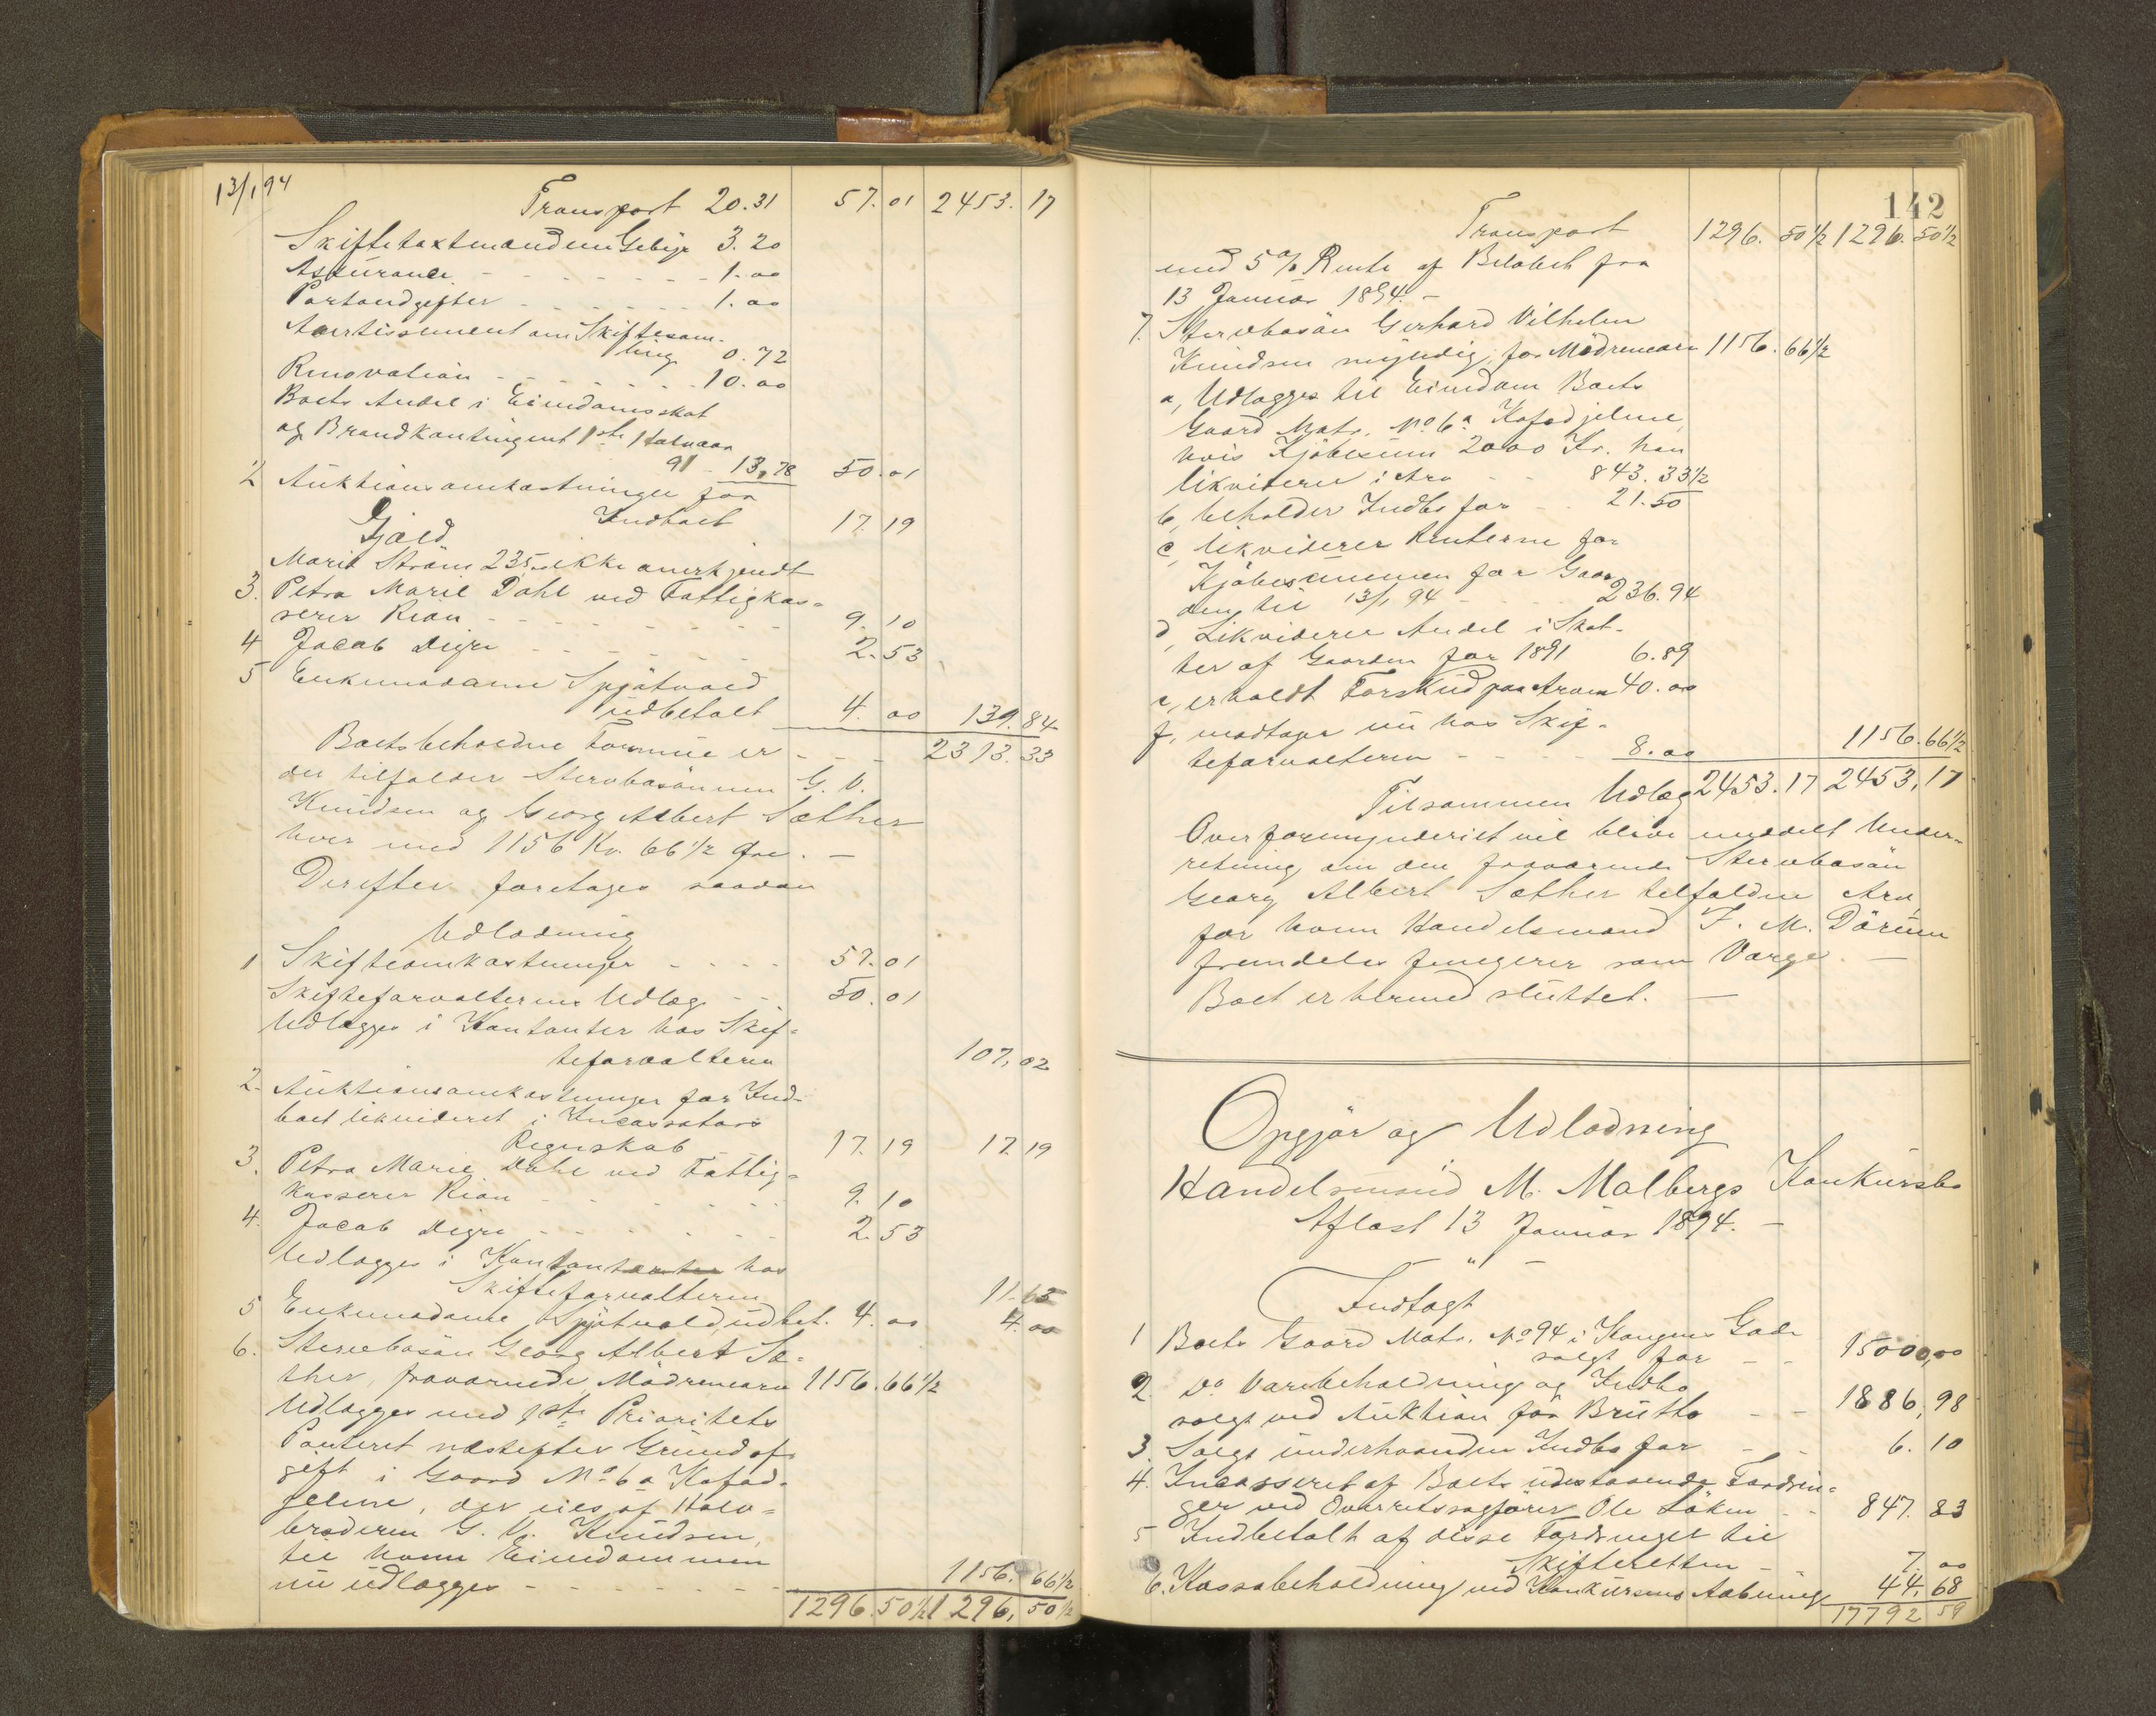 13/1 94
Transport 20.31 57.01 2453.17
Skiftetaxtmændenes Gebyr 3.20
Assurance - - - - - 1.00
Portoudgifter - - - - 1.00
Avertissement om Skiftesam-
ling 0.72
Renovation - - - - - 10.00
Boets Andel i Eiendomsskat
og Brandkontingent 1ste Halvaar
91 - 13.78 50.01
2 Auktionsomkostninger for
Indboet 17.19
Gjæld
Marie Ström 235 ikke anerkjendt
3. Petra Marie Dahl ved Fattigkas-
serer Rian - - - - - 9.10
4 Jacob Digre - - - - - 2.53
5 Enkemadame Spjötvold
udbetalt 4.00 139.84
Boets beholdne Formue er - - - 2313.33
der tilfalder Stervbosönnen G. V.
Knudsen og Georg Albert Sæther
hver med 1156 Kr. 66 1/2 Øre. -
Derefter foretages saadan
Udlodning
1 Skifteomkostninger - - - - 57.01
Skifteforvalterens Udlæg - - - 50.01
Udlægges i Kontanter hos Skif-
teforvalteren 107.02
2. Auktionsomkostninger for Ind-
boet likvideret i Incassators
Regnskab - 17.19 17.19
3. Petra Marie Dahl ved Fattig-
kasserer Rian - - - - - 9.10
4. Jacob Digre - - - - - 2.53
Udlægges i Kontanter hos
Skifteforvalteren 11.63
5 Enkemadame Spjötvold, udbet. 4.00 4.00
6. Stervbosön Georg Albert Sæ-
ther, fraværende, Mödrenearv 1156.66 1/2
Udlægges med 1ste Prioritets
Panteret næstefter Grundaf-
gift i Gaard No 6a Kofod-
gelme, der eies af Halv-
broderen G. V. Knudsen,
til hvem Eiendommen
nu udlægges - - - - - - 1156.66 1/2
1296.50 1/2 1296.50 1/2
142
Transport 1296.50 1/2 1296.50 1/2
med 5 % Rente af Belöbet fra
13 Januar 1894. -
7. Stervbosön Gerhard Vilhelm
Knudsen myndig, for Mödrenearv 1156.66 1/2
a, Udlægges til Eiendom Boets
Gaard Matr. No 6a Kofodjelme,
hvis Kjöbesum 2000 Kr. han
likviderer i Arv - - 843.33 1/2
b, beholder Indbo for - - 21.50
c, likviderer Renterne for
Kjöbesummen for Gaar-
den til 13/1 94 - - - 236.94
d, Likviderer Andel i Skat-
ter af Gaarden for 1891 6.89
e, erholdt Forskud paa Arven 40.00
f, modtager nu hos Skif-
teforvalteren - - - - 8.00 1156.66 1/2
Tilsammen Udlæg 2453.17 2453.17
Overformynderiet vil blive meddelt Under-
retning om den fraværende Stervbosön
Georg Albert Sæther tilfaldne Arv,
for hvem Handelsmand F. M. Dörum
fremdeles fungerer som Værge. -
Boet er hermed sluttet. -
Opgjör og Udlodning
i
Handelsmand M. Malbergs Konkursbo
Aflæst 13 Januar 1894. -
Indtægt
1 Boets Gaard Matr. No 94 i Kongens Gade
solgt for - - 15000.00
2. Do Varebeholdning og Indbo
solgt ved Auktion for Brutto - - 1886.98
3. Solgt underhaanden Indbo for - - 6.10
4. Incasseret af Boets udestaaende Fordrin-
ger ved Overretssagförer Ole Löken - - 847.83
5 Indbetalt af disse Fordringer til
Skifteretten - 7.00
6. Kassabeholdning ved Konkursens Aabning 44.68
17792.59